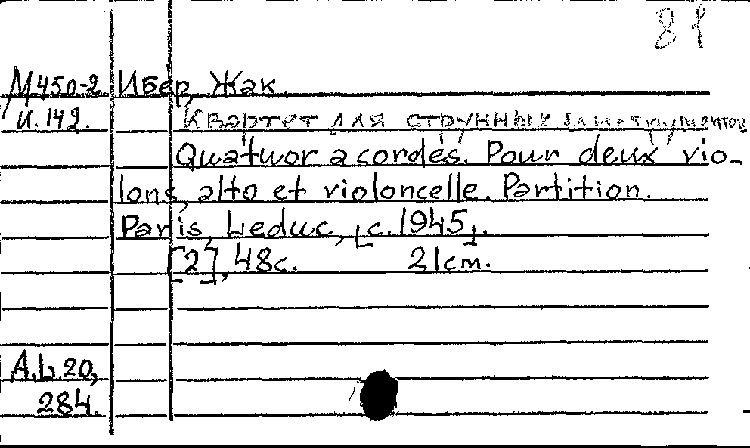 81
М450-2 Ибер, Жак.
И.142. Квартет для струнных инструментов
Quatuor a cordes. Pour deux vio-
lons, alto et violoncelle. Partition.
Paris, Leduc, [c.1945].
[2], 48c. 21cm.
A.L.20,
284.